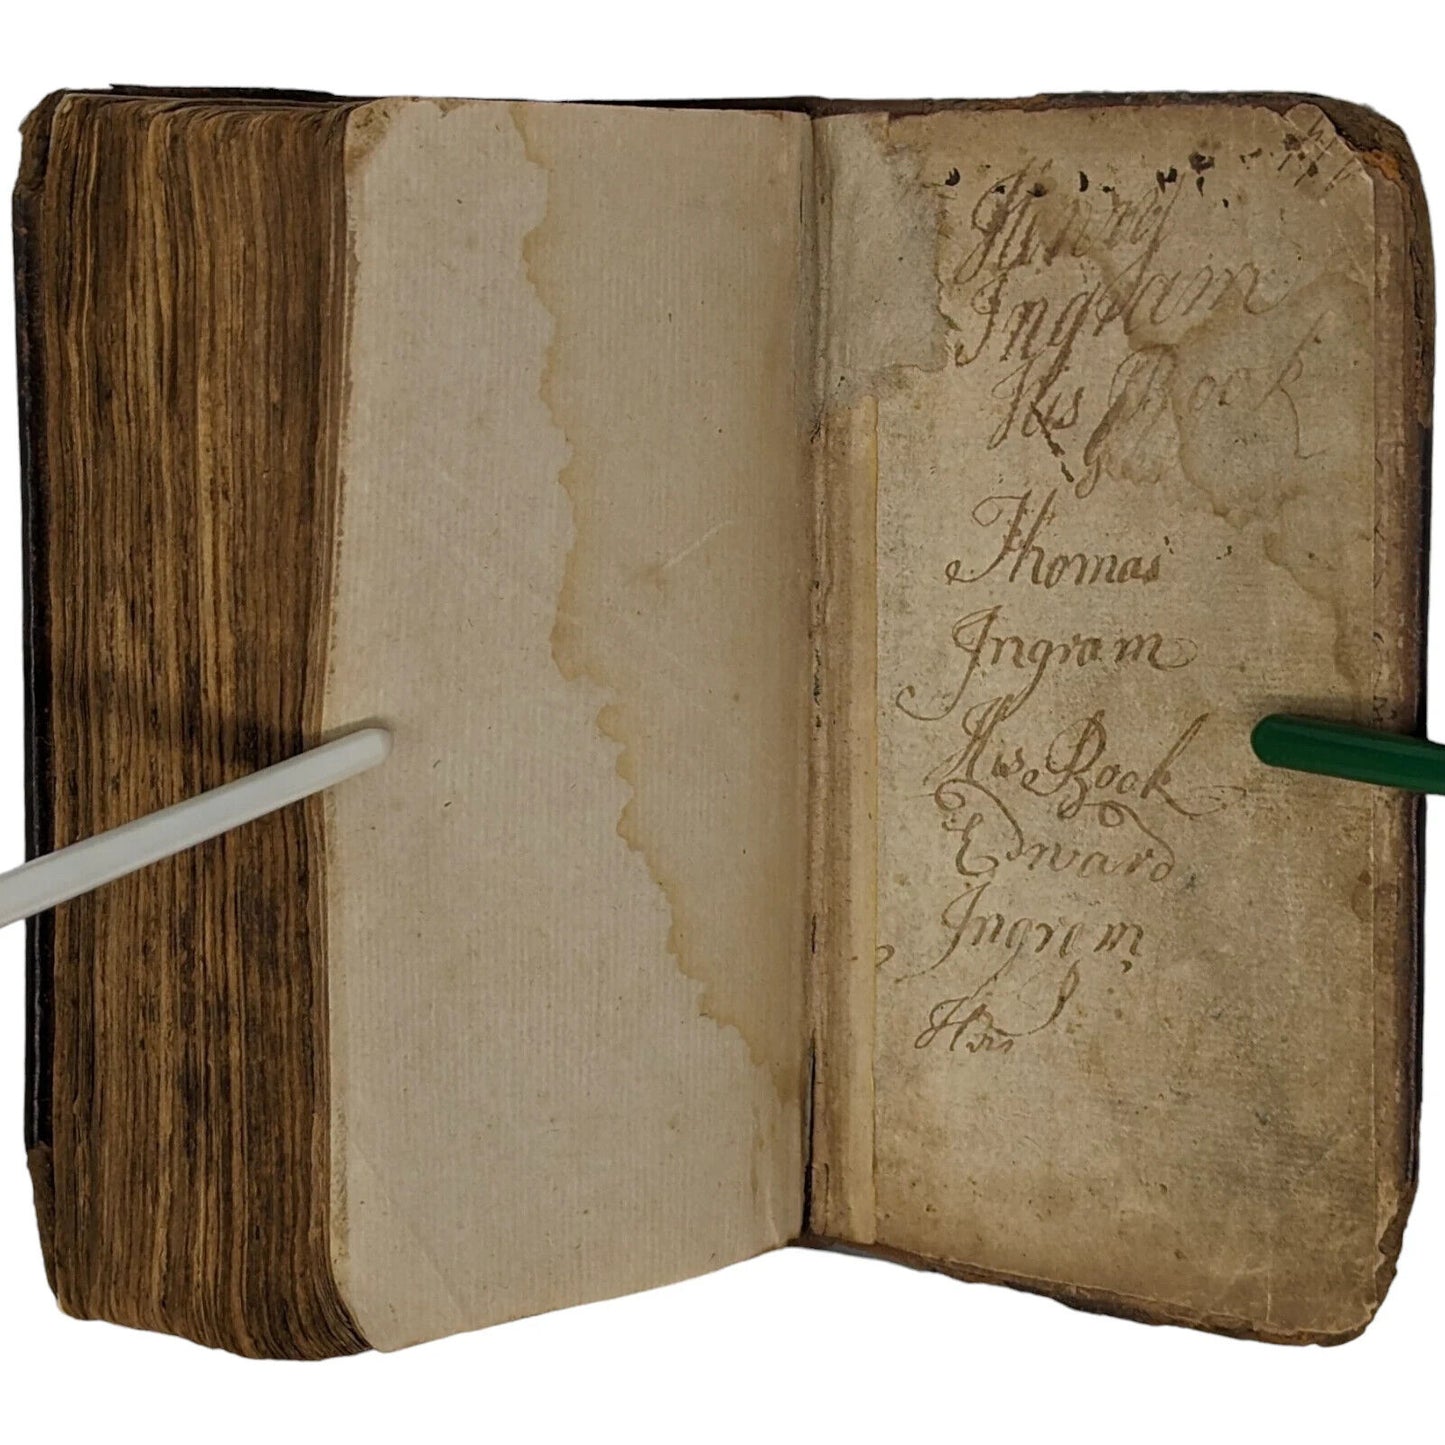 Henry
Ingram
His Book
Thomas
Ingram
His Book
Edward
Ingram
His